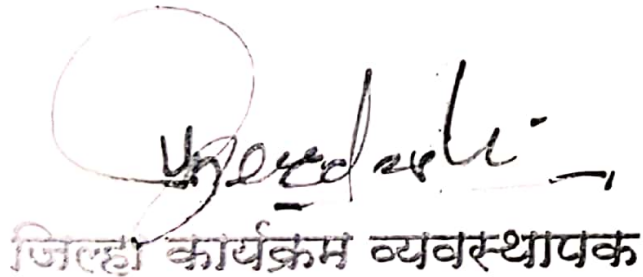 जिल्हा कार्यक्रम व्यवस्थापक